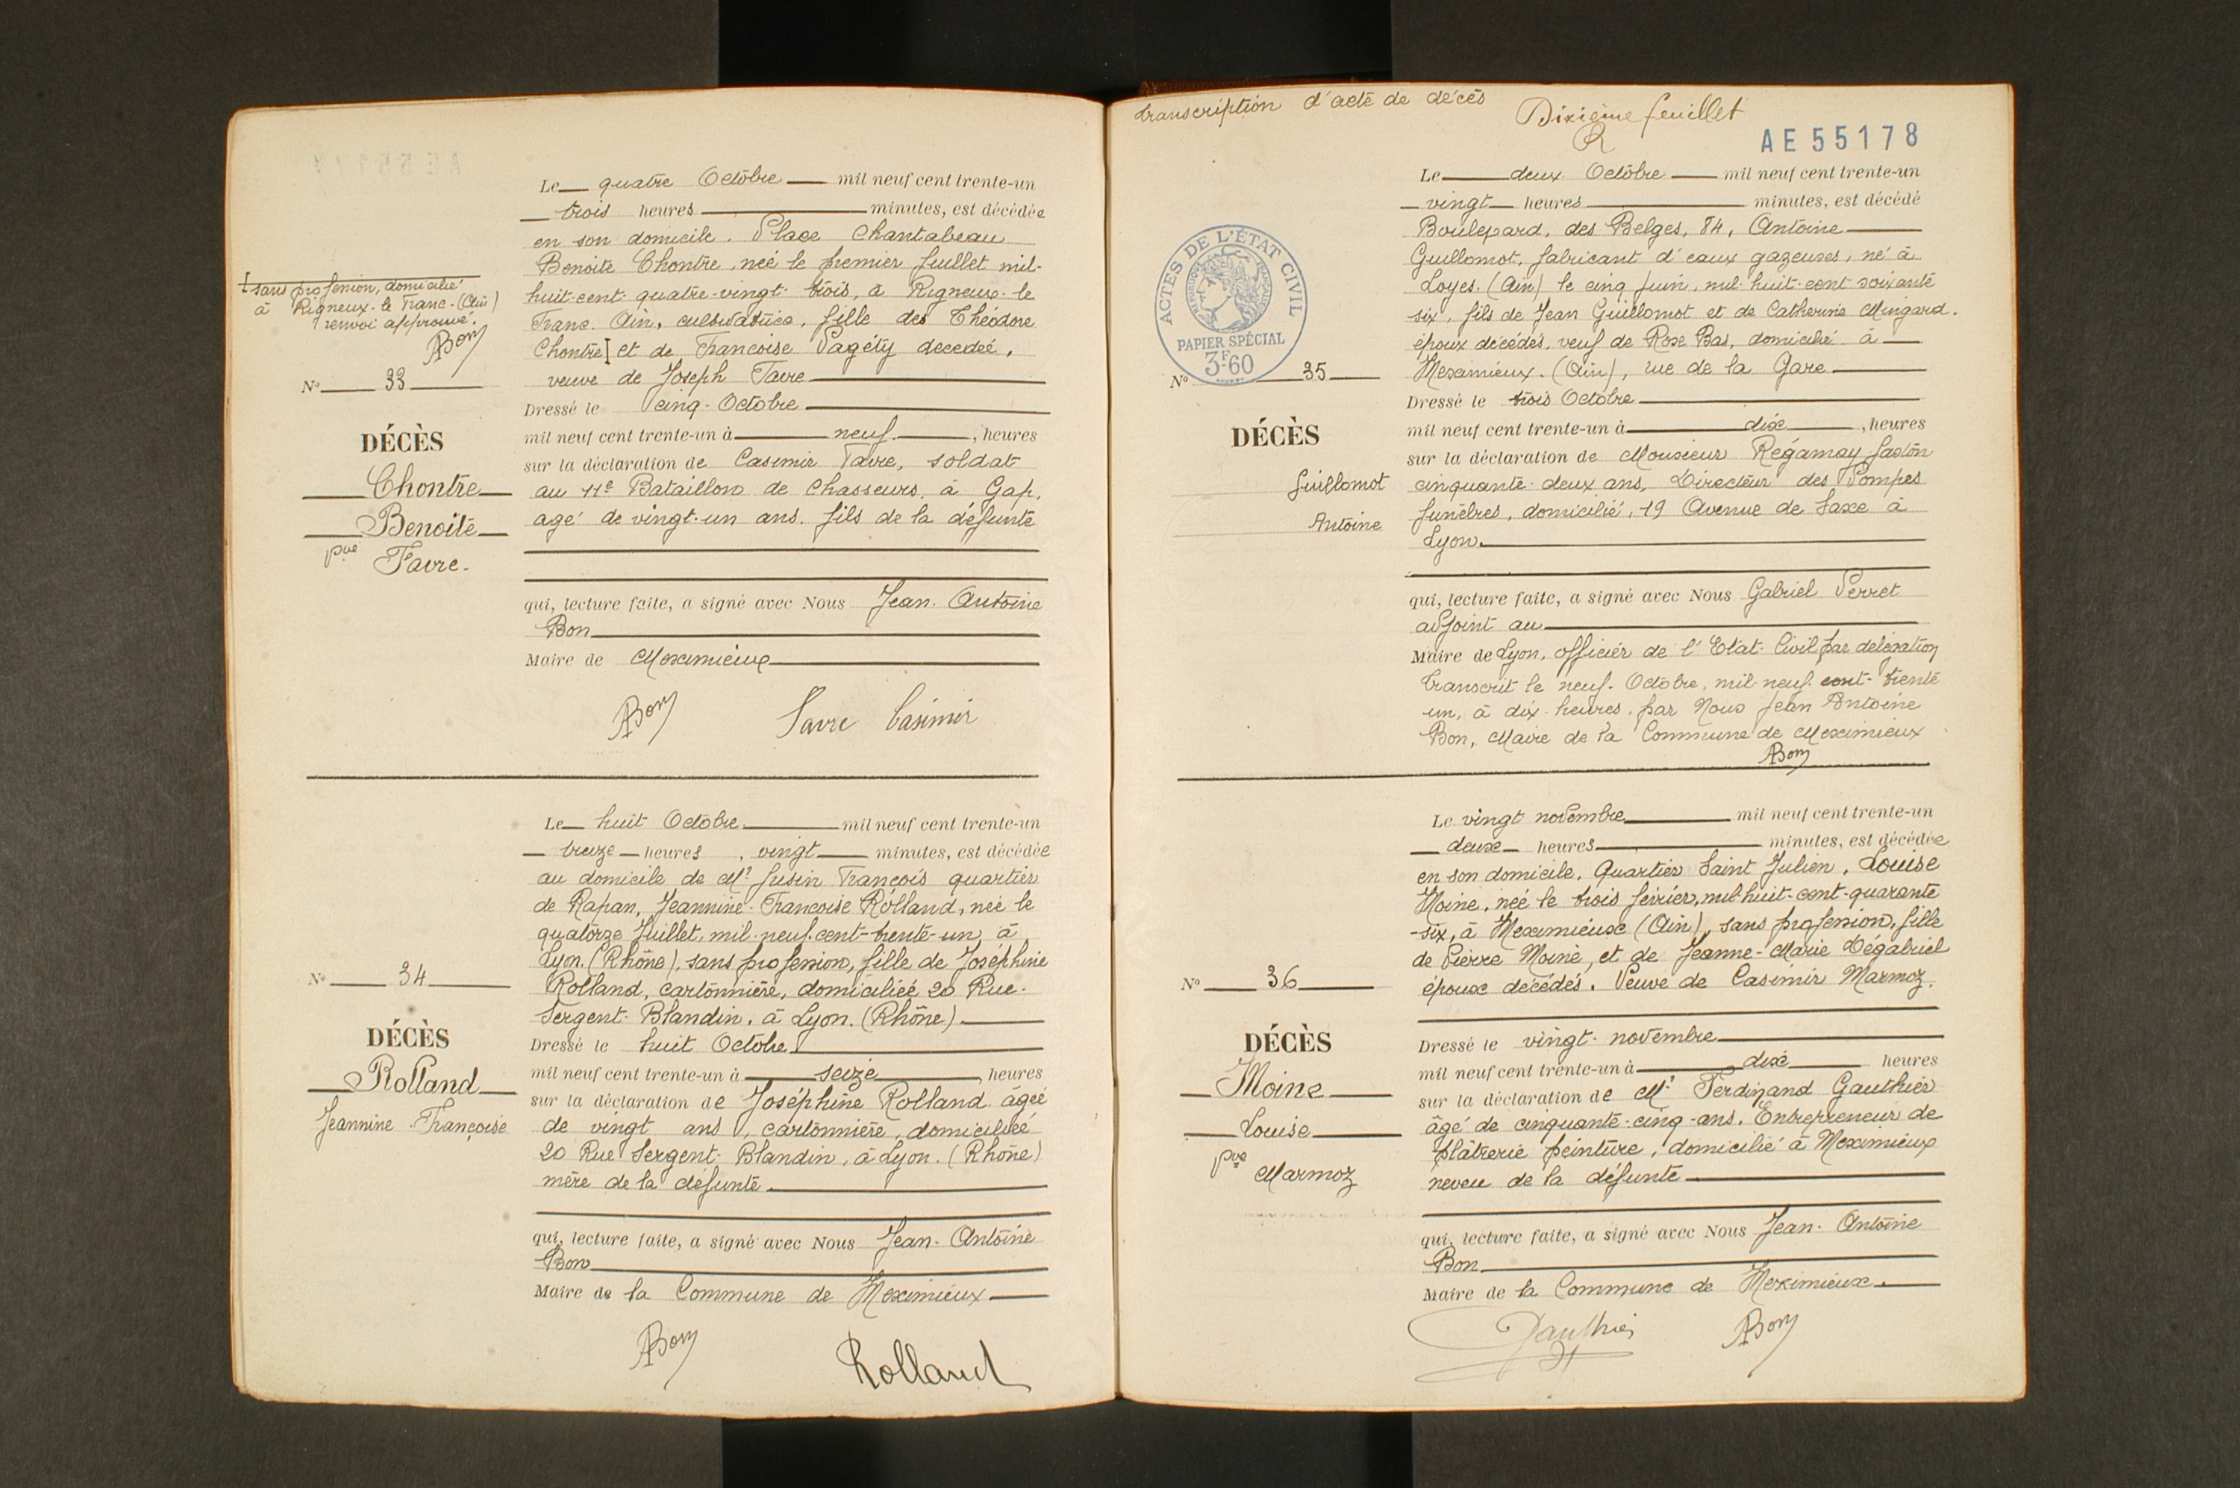 [sans profession, domicilié
à Rigneux-le Franc-(Ain)
renvoi approuvé.
ABon
No 33
DÉCÈS
Chontre
Benoite
Vve
Favre.
Le quatre Octobre mil neuf cent trente-un
trois heures minutes, est décédée
en son domicile. Place Chantabeau
Benoite Chontre, née le premier Juillet mil-
huit-cent-quatre-vingt-trois, à Rigneux-le
Franc. Ain, cultivatrice, fille des Théodore
Chontre[ et de Francoise Pagéty decedeé,
veuve de Joseph Favre
Dressé le cinq-Octobre
mil neuf cent trente-un à neuf, heures
sur la déclaration de Casimir Favre, soldat
au 11e Bataillon de Chasseurs, à Gap,
agé de vingt-un ans. fils de la défunte
qui, lecture faite, a signé avec Nous Jean-Antoine
Bon
Maire de Meximieux
ABon Favre Casimir
No 34
DÉCÈS
Rolland
Jeannine-Françoise
Le huit Octobre mil neuf cent trente-un
treize heures, vingt minutes, est décédée
au domicile de Mr Jusin François quartier
de Rapan, Jeannine-Francoise Rolland, née le
quatorze Juillet, mil-neuf-cent-trente-un à
Lyon. (Rhône), sans profession, fille de Joséphine
Rolland, cartonnière, domiciliée 20 Rue-
Sergent-Blandin, à Lyon. (Rhône)
Dressé le huit Octobre
mil neuf cent trente-un à seize, heures
sur la déclaration de Joséphine Rolland âgée
de vingt ans, cartonnière, domiciliée
20 Rue Sergent-Blandin, à Lyon. (Rhône)
mère de la défunte
qui, lecture faite, a signé avec Nous Jean-Antoine
Bon
Maire de la Commune de Meximieux
ABon Rolland
transcription d'acte de décès
Dixième feuillet
AE 55178
ACTES DE L'ÉTAT CIVIL
RÉPUBLIQUE FRANÇAISE
PAPIER SPÉCIAL
3F60
No 35
DÉCÈS
Guillomot
Antoine
Le deux Octobre mil neuf cent trente-un
vingt heures minutes, est décédé
Boulevard, des Belges, 84, Antoine
Guillomot, fabricant d'eaux gazeuses, né à
Loyes. (Ain) le cinq Juin, mil-huit-cent soixante
six, fils de Jean Guillomot et de Catherine Mingard.
époux décédés, veuf de Rose Bas, domicilié à
Meximieux. (Ain), rue de la Gare
Dressé le trois Octobre
mil neuf cent trente-un à dix, heures
sur la déclaration de Monsieur Régamey Gaston
cinquante-deux ans, Directeur des Pompes
funèbres, domicilié, 19 Avenue de Saxe à
Lyon.
qui, lecture faite, a signé avec Nous Gabriel Perret
adjoint au
Maire de Lyon, officier de l'Etat-Civil par délégation
Transcrit le neuf-Octobre, mil-neuf-cent-trente
un, à dix-heures, par Nous Jean Antoine
Bon, Maire de la Commune de Meximieux
ABon
No 36
DÉCÈS
Moine
Louise
Vve
Marmoz
Le vingt novembre mil neuf cent trente-un
deux heures minutes, est décédée
en son domicile, Quartier Saint Julien, Louise
Moine, née le trois février, mil-huit-cent-quarante
-six, à Meximieux (Ain), sans profession, fille
de Pierre Moine, et de Jeanne-Marie Dégabriel
époux décédés. Veuve de Casimir Marmoz.
Dressé le vingt-novembre
mil neuf cent trente-un à dix heures
sur la déclaration de Mr Ferdinand Gauthier
âgé de cinquante-cinq-ans, Entrepreneur de
plâtrerie peinture, domicilié à Meximieux
neveu de la défunte
qui, lecture faite, a signé avec Nous Jean-Antoine
Bon
Maire de la Commune de Meximieux.
Gauthier ABon